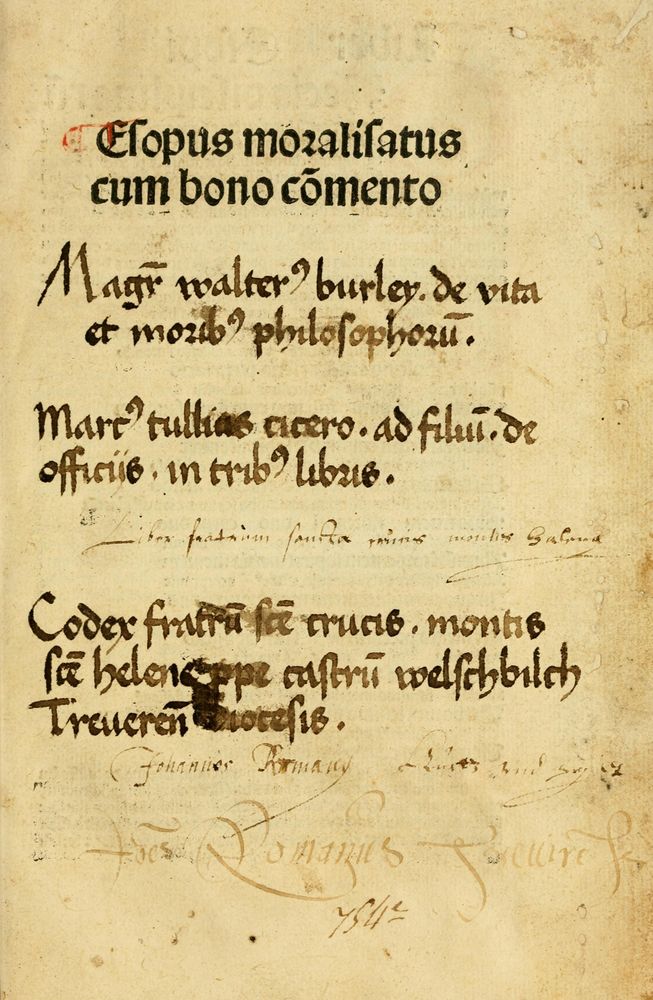 Esopus moralisatus
cum bono cõmento
Magr̃ walterꝰ burley. de vita
et moribꝰ philosophorũ.
Marcꝰ tullius cicero. ad filiũ. de
officijs. in tribꝰ libris.
Liber fratrum sancta crucis montis
Codex fratrũ sc̃e crucis. montis
sc̃e helene ꝓpe castrũ welschbilch
Treuereñ diocesis.
Johannes Romany
Joe͂s Romanus
1542